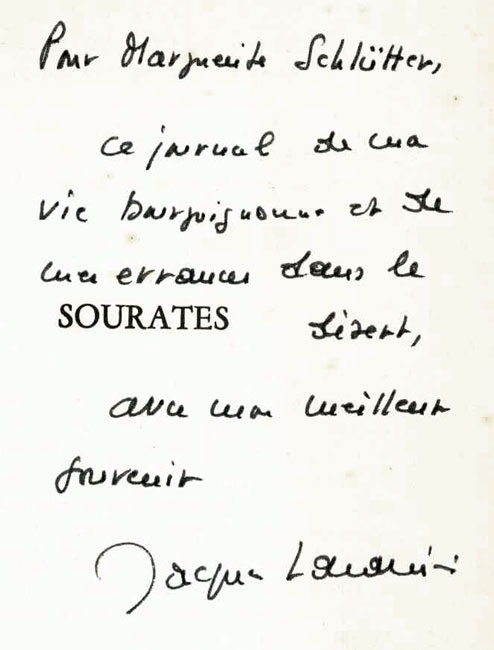 Pour Marguerite Schlütter,
ce journal de ma
vie bourguignonne et de
mes errances dans le
SOURATES désert,
avec mon meilleur
souvenir
Jacques Lacarrière